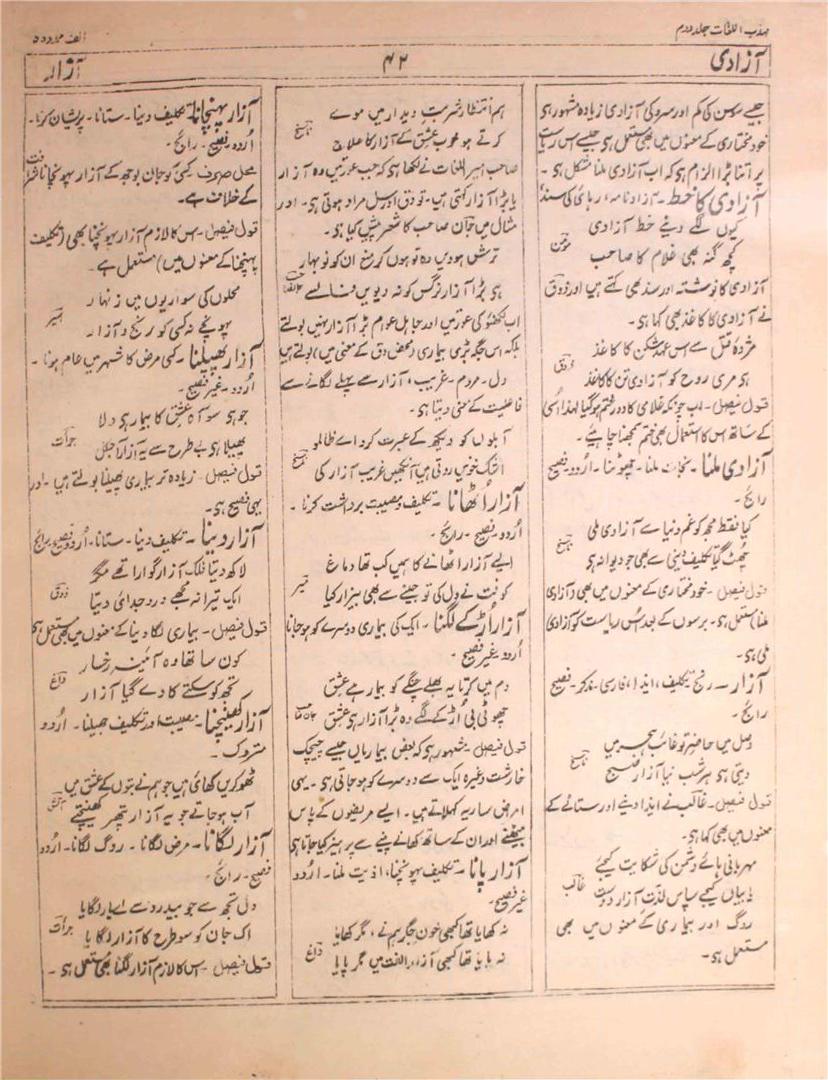 مہذب اللغات جلد دوم
الف ممدودہ
آزادی
۴۲
آزار
جیسے سوسن کی کم اور سرو کی آزادی زیادہ مشہور ہی
خود مختاری کے معنوں میں بھی مستعمل ہی جیسے اس ریاست
پر اتنا بڑا الزام ہو کہ اب آزادی ملنا مشکل ہی۔
آزادی کا خط۔ آزاد نامہ، رہائی کی سند
کیوں لگے دینے خط آزادی
کچھ گنہ بھی غلام کا صاحب مومن
آزادی کا نوشتہ اور سند بھی کہتے ہیں اور ذوق
نے آزادی کا کاغذ بھی کہا ہی۔
مژدۂ قتل ہے اس عہد شکن کا کاغذ
ہی مری روح کو آزادی تن کا کاغذ ذوق
قول فیصل۔ اب چونکہ غلامی کا دور ختم ہو گیا لہذا اسی
کے ساتھ اس کا استعمال بھی ختم سمجھنا چاہیے۔
آزادی ملنا۔ نجات ملنا۔ چھوٹنا۔ اردو فصیح
رائج۔
کیا فقط مجھ کو غم دنیا سے آزادی ملی
چھٹ گیا تکلیف دینی سے بھی جو دیوانہ ہی ناسخ
قول فیصل۔ خود مختاری کے معنوں میں بھی (آزادی
ملنا) مستعمل ہی۔ برسوں کے بعد اُس ریاست کو آزادی
ملی ہی۔
آزار۔ رنج، تکلیف، ایذا، فارسی۔ مذکر۔ فصیح
رائج۔
وصل میں حاضر تو غائب ہجر میں
دیتی ہی ہر شب نیا آزار صبح ناسخ
قول فیصل۔ غالب نے ایذا دینے اور ستانے کے
معنوں میں بھی کہا ہی۔
مہربانی ہائے دشمن کی شکایت کیجیے
یا بیاں کیجیے سپاس لذت آزار دوست غالب
روگ اور بیماری کے معنوں میں بھی
مستعمل ہی۔
ہم انتظار شربت دیدار میں موے
کرتے ہو خوب عشق کے آزار کا علاج ناسخ
صاحب امیر اللغات نے لکھا ہی کہ جب عورتیں وہ آزار
یا بڑا آزار کہتی ہیں۔ تو دق اور سل مراد ہوتی ہی۔ اور
مثال میں جان صاحب کا شعر پیش کیا ہی۔
ترسش ہو ویں وہ تو ہوں کر منع ان کو نو بہار
ہی بڑا آزار نرگس کو نہ دیویں فالسے
اب لکھنؤ کی عورتیں اور جاہل عوام بڑا آزار نہیں بولتے
بلکہ اس جگہ بڑی بیماری (محض دق کے معنی میں) بولتے ہیں
دل۔ مردم۔ غریب، آزار سے پہلے لگانے سے
فاعلیت کے معنی دیتا ہی۔
آبلوں کو دیکھ کے عبرت کرو اے ظالمو
اشک خوں روتی ہیں آنکھیں غریب آزار کی ناسخ
آزار اٹھانا۔ تکلیف و مصیبت برداشت کرنا۔
اردو فصیح۔ رائج۔
ایسے آزار اٹھانے کا ہمیں کب تھا دماغ
کوفت نے دل کی تو جینے سے بھی بیزار کیا میر
آزار اُڑ کے لگنا۔ ایک کی بیماری دوسرے کو ہو جانا
اردو غیر فصیح۔
دم میں کرتا یہ بھلے چنگے کو بیمار ہے عشق
چھوٹی بی اُڑ کے لگے وہ بڑا آزار ہی عشق جان صاحب
قول فیصل۔ مشہور ہی کہ بعض بیماریاں جیسے چیچک
خارشت وغیرہ ایک سے دوسرے کو ہو جاتی ہی۔ یہی
امراض ساریہ کہلاتے ہیں۔ ایسے مریضوں کے پاس
بیٹھنے اور ان کے ساتھ کھانے پینے سے پرہیز کیا جاتا ہی
آزار پانا۔ تکلیف پہونچنا، اذیت ملنا۔ اردو
غیر فصیح۔
نہ کھایا تھا کبھی خون جگر ہم نے، مگر کھایا
نہ پایا تھا کبھی آزار، الفت میں مگر پایا داغ
آزار پہنچانا۔ تکلیف دینا۔ ستانا۔ پریشان کرنا۔
اردو فصیح۔ رائج۔
محل صرف کسی کو جان بوجھ کے آزار پہونچانا شرافت
کے خلاف ہے۔
قول فیصل۔ اس کا لازم آزار پہونچنا بھی (تکلیف
پہنچنا کے معنوں میں) مستعمل ہے۔
محلوں کی سواریوں میں زنہار
پہونچے نہ کسی کو رنج و آزار
آزار پھیلنا۔ کسی مرض کا شہر میں عام ہونا۔
اردو۔ غیر فصیح۔
جو ہی سو آہ عشق کا بیمار ہی دلا
پھیلا ہی بے طرح سے یہ آزار آجکل جرأت
قول فیصل۔ زیادہ تر بیماری پھیلنا بولتے ہیں۔ اور
یہی فصیح ہی۔
آزار دینا۔ تکلیف دینا۔ ستانا۔ اردو فصیح رائج
لاکھ دیتا فلک آزار گوارا تھے مگر
ایک تیرا نہ مجھے درد جدائی دیتا ذوق
قول فیصل۔ بیماری لگا دینا کے معنوں میں بھی مستعمل ہی
کون سا تھا وہ آئینہ رخسار
تجھ کو سکتے کا دے گیا آزار داغ
آزار کھینچنا۔ مصیبت اور تکلیف جھیلنا۔ اردو
متروک۔
ٹھوکریں کھائی ہیں جو ہم نے بتوں کے عشق میں
آب ہو جاتے جو یہ آزار پتھر کھینچتے آتش
آزار لگانا۔ مرض لگانا۔ روگ لگانا۔ اردو
فصیح۔ رائج۔
دل تجھ سے جو بیدرد سے اے یار لگایا
اک جان کو سو طرح کا آزار لگایا جرأت
قول فیصل۔ اس کا لازم آزار لگنا بھی مستعمل ہی۔